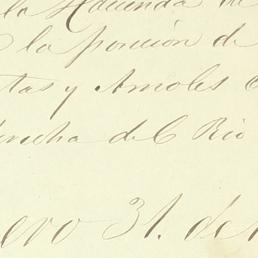 la Hacienda de
la porcion de
tas y Amoles
derecha del Rio
ero 31. de